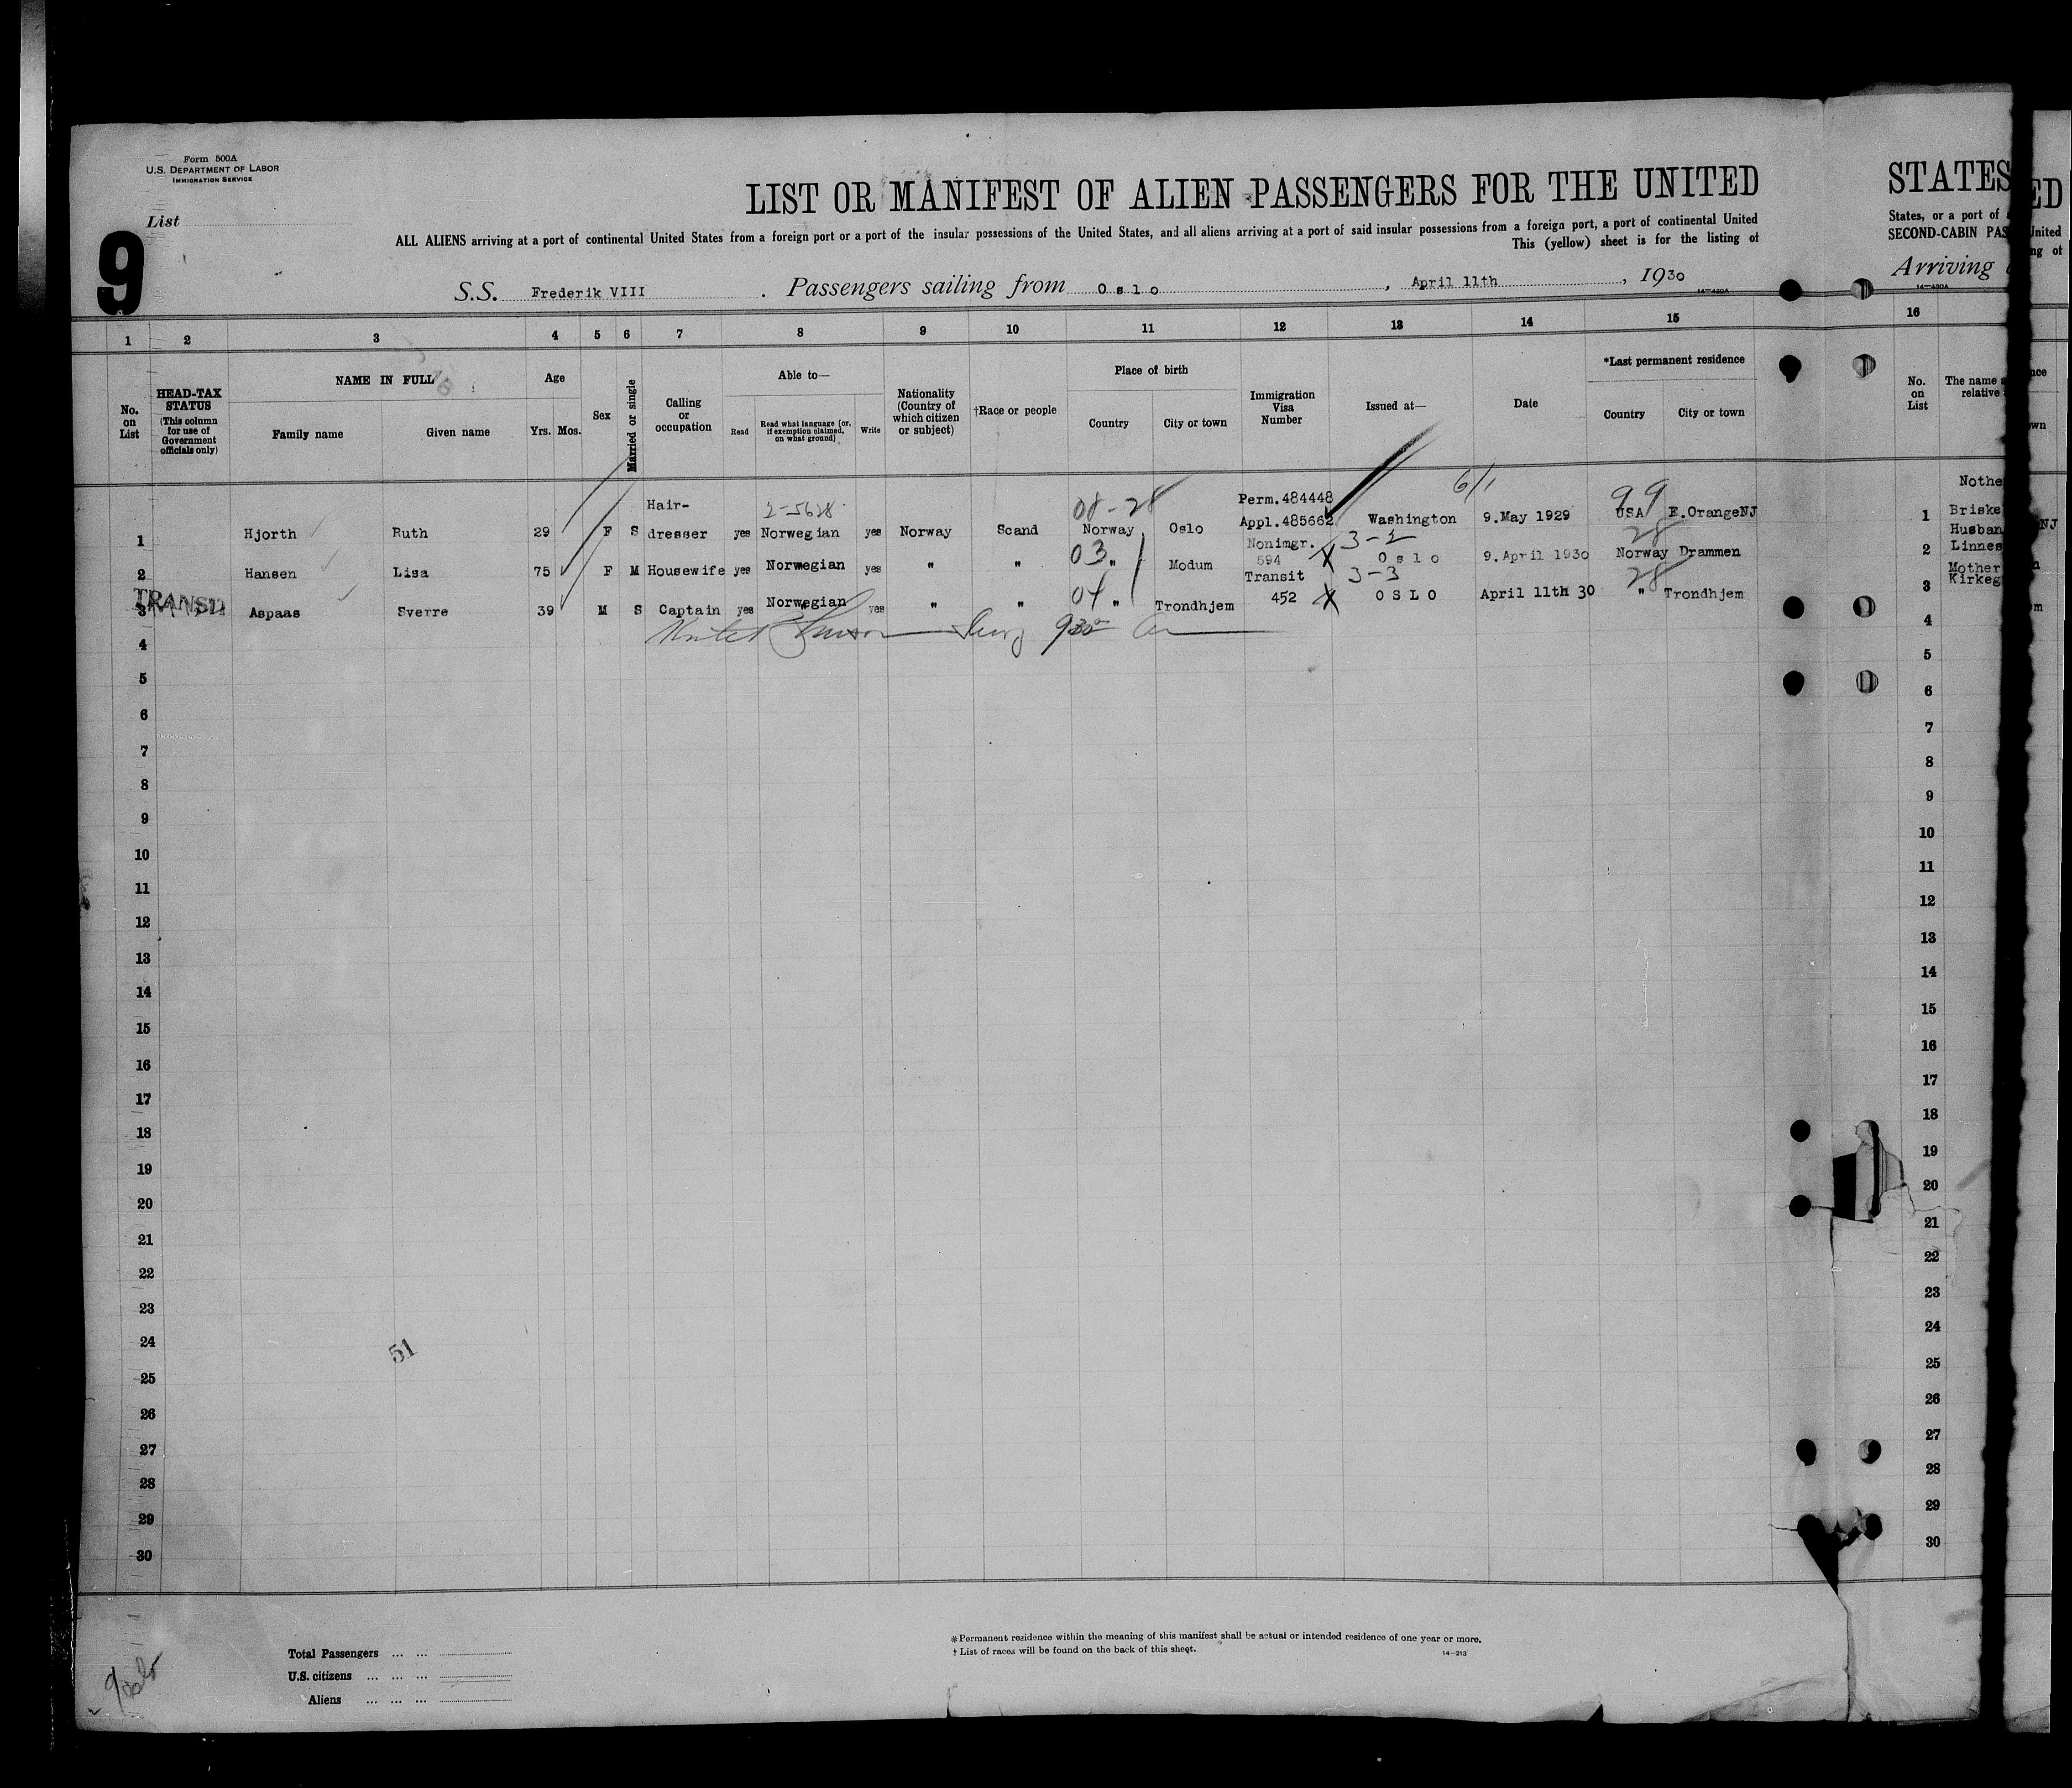 Form 500A
U.S. DEPARTMENT OF LABOR
IMMIGRATION SERVICE
List
9
LIST OR MANIFEST OF ALIEN PASSENGERS FOR THE UNITED
ALL ALIENS arriving at a port of continental United States from a foreign port or a port of the insular possessions of the United States, and all aliens arriving at a port of said insular possessions from a foreign port, a port of continental United
This (yellow) sheet is for the listing of
S.S. Frederik VIII . Passengers sailing from Oslo , April 11th , 1930
14—480A
STATES
States, or a port of
SECOND-CABIN PAS
Arriving
14—480A
ED
United
ng of
1 2 3 4 5 6 7 8 9 10 11 12 13 14 15 16
No. on List
HEAD-TAX STATUS
(This column for use of Government officials only)
NAME IN FULL
Family name Given name
Age
Yrs. Mos.
Sex
Married or single
Calling or occupation
Able to—
Read
Read what language (or, if exemption claimed, on what ground)
Write
Nationality (Country of which citizen or subject)
†Race or people
Place of birth
Country City or town
Immigration Visa Number
Issued at—
Date
*Last permanent residence
Country City or town
No. on List
The name
relative
Hair- 2-5628 08-28 Perm.484448 6/1 99 Nothe
1 Hjorth Ruth 29 F S dresser yes Norwegian yes Norway Scand Norway Oslo Appl.485662 Washington 9.May 1929 USA E.OrangeNJ 1 Briske
Nonimgr. 3-2 28 Husban
2 Hansen Lisa 75 F M Housewife yes Norwegian yes " " 03 " Modum 594 Oslo 9.April 1930 Norway Drammen 2 Linnes
Transit 3-3 28 Mother
TRANSIT
3 Aspaas Sverre 39 M S Captain yes Norwegian yes " " 04 " Trondhjem 452 OSLO April 11th 30 " Trondhjem 3 Kirkeg
4 4
5 5
6 6
7 7
8 8
9 9
10 10
11 11
12 12
13 13
14 14
15 15
16 16
17 17
18 18
19 19
20 20
21 21
22 22
23 23
24 24
51
25 25
26 26
27 27
28 28
29 29
30 30
Total Passengers ... ...
U.S. citizens ... ... ...
Aliens ... ... ...
* Permanent residence within the meaning of this manifest shall be actual or intended residence of one year or more.
† List of races will be found on the back of this sheet.
14—213